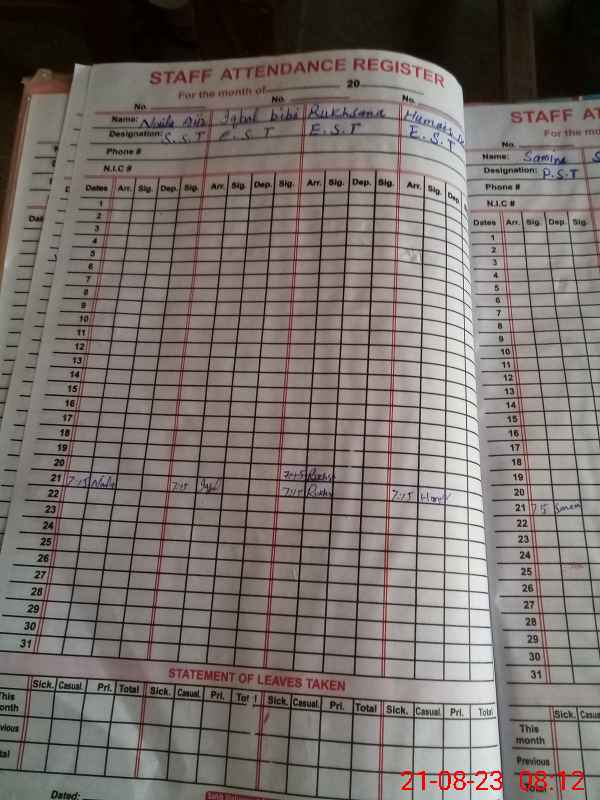 STAFF ATTENDANCE REGISTER
For the month of 20
No. No. No.
Name: Iqbal bibi Rukhsana
Designation: S.S.T E.S.T E.S.T E.S.T
Phone #
N.I.C #
Dates Arr. Sig. Dep. Sig. Arr. Sig. Dep. Sig. Arr. Sig. Dep. Sig. Arr. Sig. Dep. Sig.
1
2
3
4
5
6
7
8
9
10
11
12
13
14
15
16
17
18
19
20
21 7:15 7:15 7:15
22 7:15 7:15
23
24
25
26
27
28
29
30
31
STATEMENT OF LEAVES TAKEN
Sick. Casual. Pri. Total Sick. Casual. Pri. Sick. Casual. Pri. Total Sick. Casual. Pri. Total
This
month
Dated:
STAFF
For the
No.
Name: Samina
Designation: P.S.T
Phone #
N.I.C #
Dates Arr. Sig. Dep. Sig.
1
2
3
4
5
6
7
8
9
10
11
12
13
14
15
16
17
18
19
20
21
22
23
24
25
26
27
28
29
30
31
Sick. Casual
This
month
Previous
Total
21-08-23 08:12